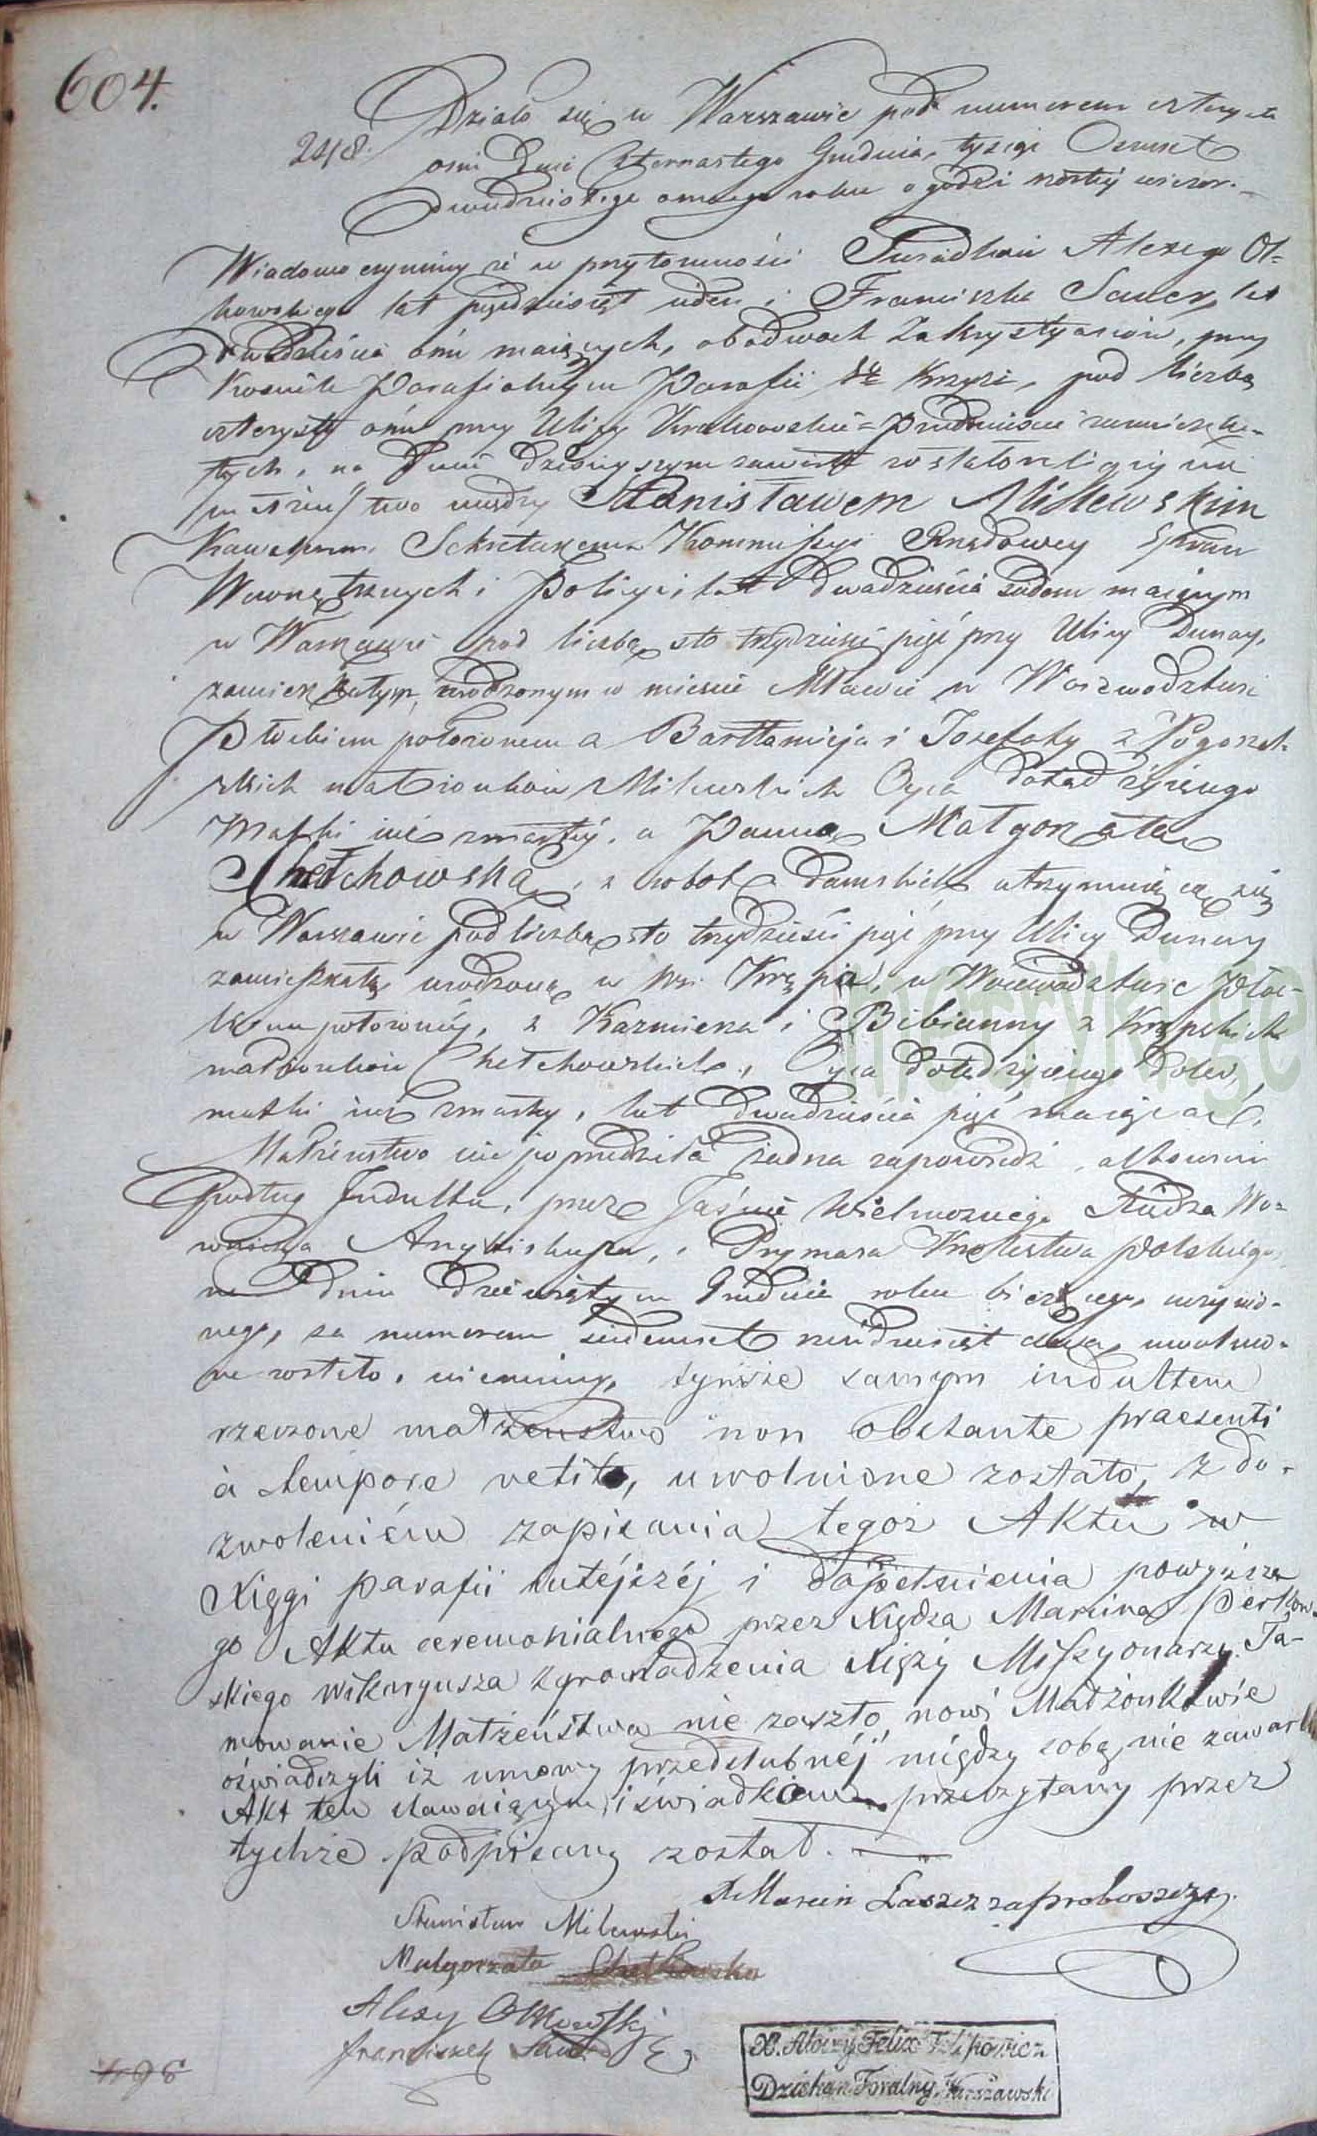 604.
248.
Działo się w Warszawie pod numerem czterysta
ośm Dnia Czternastego Grudnia, tysiąc Ośmset
dwudziestego ósmego roku o godzi szóstéj wieczor.
Wiadomo czynimy że w przytomności Świadków Alexego Ol=
kowskiego lat pięćdziesiąt ieden i Franciszka Sauer, lat
dwadzieścia óśm maiących, obodwóch Zakrystyanów, przy
Kościele Parafialnym Parafii Sgo Krzyża, pod liczbą
czterysta óśm przy Ulicy Krakowskie=Przedmieście zamieszka=
łych, na Dniu dzisieyszym zawarte zostało religijne
małżeństwo między Stanisławem Milewskim
Kawalerem, Sekretarzem Kommissyi Rządowey Spraw
Wewnętrznych i Policyi lat dwadzieścia siedem maiącym
w Warszawie pod liczbą sto trzydzieści pięć przy Ulicy Dunay,
zamieszkałym, urodzonym w mieście Mławie w Woiewodztwie
Płockiem położonem a Bartłomieja i Józefaty z Pogorzel-
skich małżonków Milewskich Oyca dotąd żyiącego
Matki iuż zmarłéj, a Panną Małgorzatą
Chełchowską, z robot damskich utrzymuiącą się
w Warszawie pod liczbą sto trzydzieści pięć przy Ulicy Dunay
zamieszkałą urodzoną w wsi Krępa, w Woiewodztwie Płoc-
kiem położonéj, z Kazmierza i Bibianny z Krępskich
małżonków Chełchowskich, Oyca dotąd żyiącego
matki iuż zmarłéy, lat dwadzieścia pięć maiącą.
Małżeństwo nie poprzedziła żadna zapowiedź, albowiem
Podług Indultu, przez Jaśnie Wielmożnego Xiędza Wo=
ronicza Arcybiskupa, i Prymasa Królestwa Polskiego,
w Dniu dziewiątym Grudnia roku bieżącego, uczynio-
nego, za numerem siedemset uwolnio-
ne zostało, niemniéy, tymże samym indultem
rzeczone małżenstwo non obstante praesenti
à tempore vetito, uwolnione zostało, z do-
zwoleniém zapisania tegoż Aktu w
Xięgi parafii tutéjszéj i dopełnienia powyższe
go Aktu ceremonialnego przez Xiędza Marcina
skiego wikaryusza zgromadzenia Xięży Missyonarzy. Ta-
mowanie Małżeństwa nie zaszło, nowi Małżonkowie
oświadczyli iż umowy przedślubnéj między sobą nie zawarli
Akt ten stawaiącym i świadkom przeczytany przez
tychże podpisany został.
X Marcin Łaszcz za proboszcza.
Stanisław Milewski
Małgorzata Chełchowska
Alexy Olkowski
Franciszek Sauer
X. Aloizy Felix Filipowicz
Dziekan Foralny Warszawski